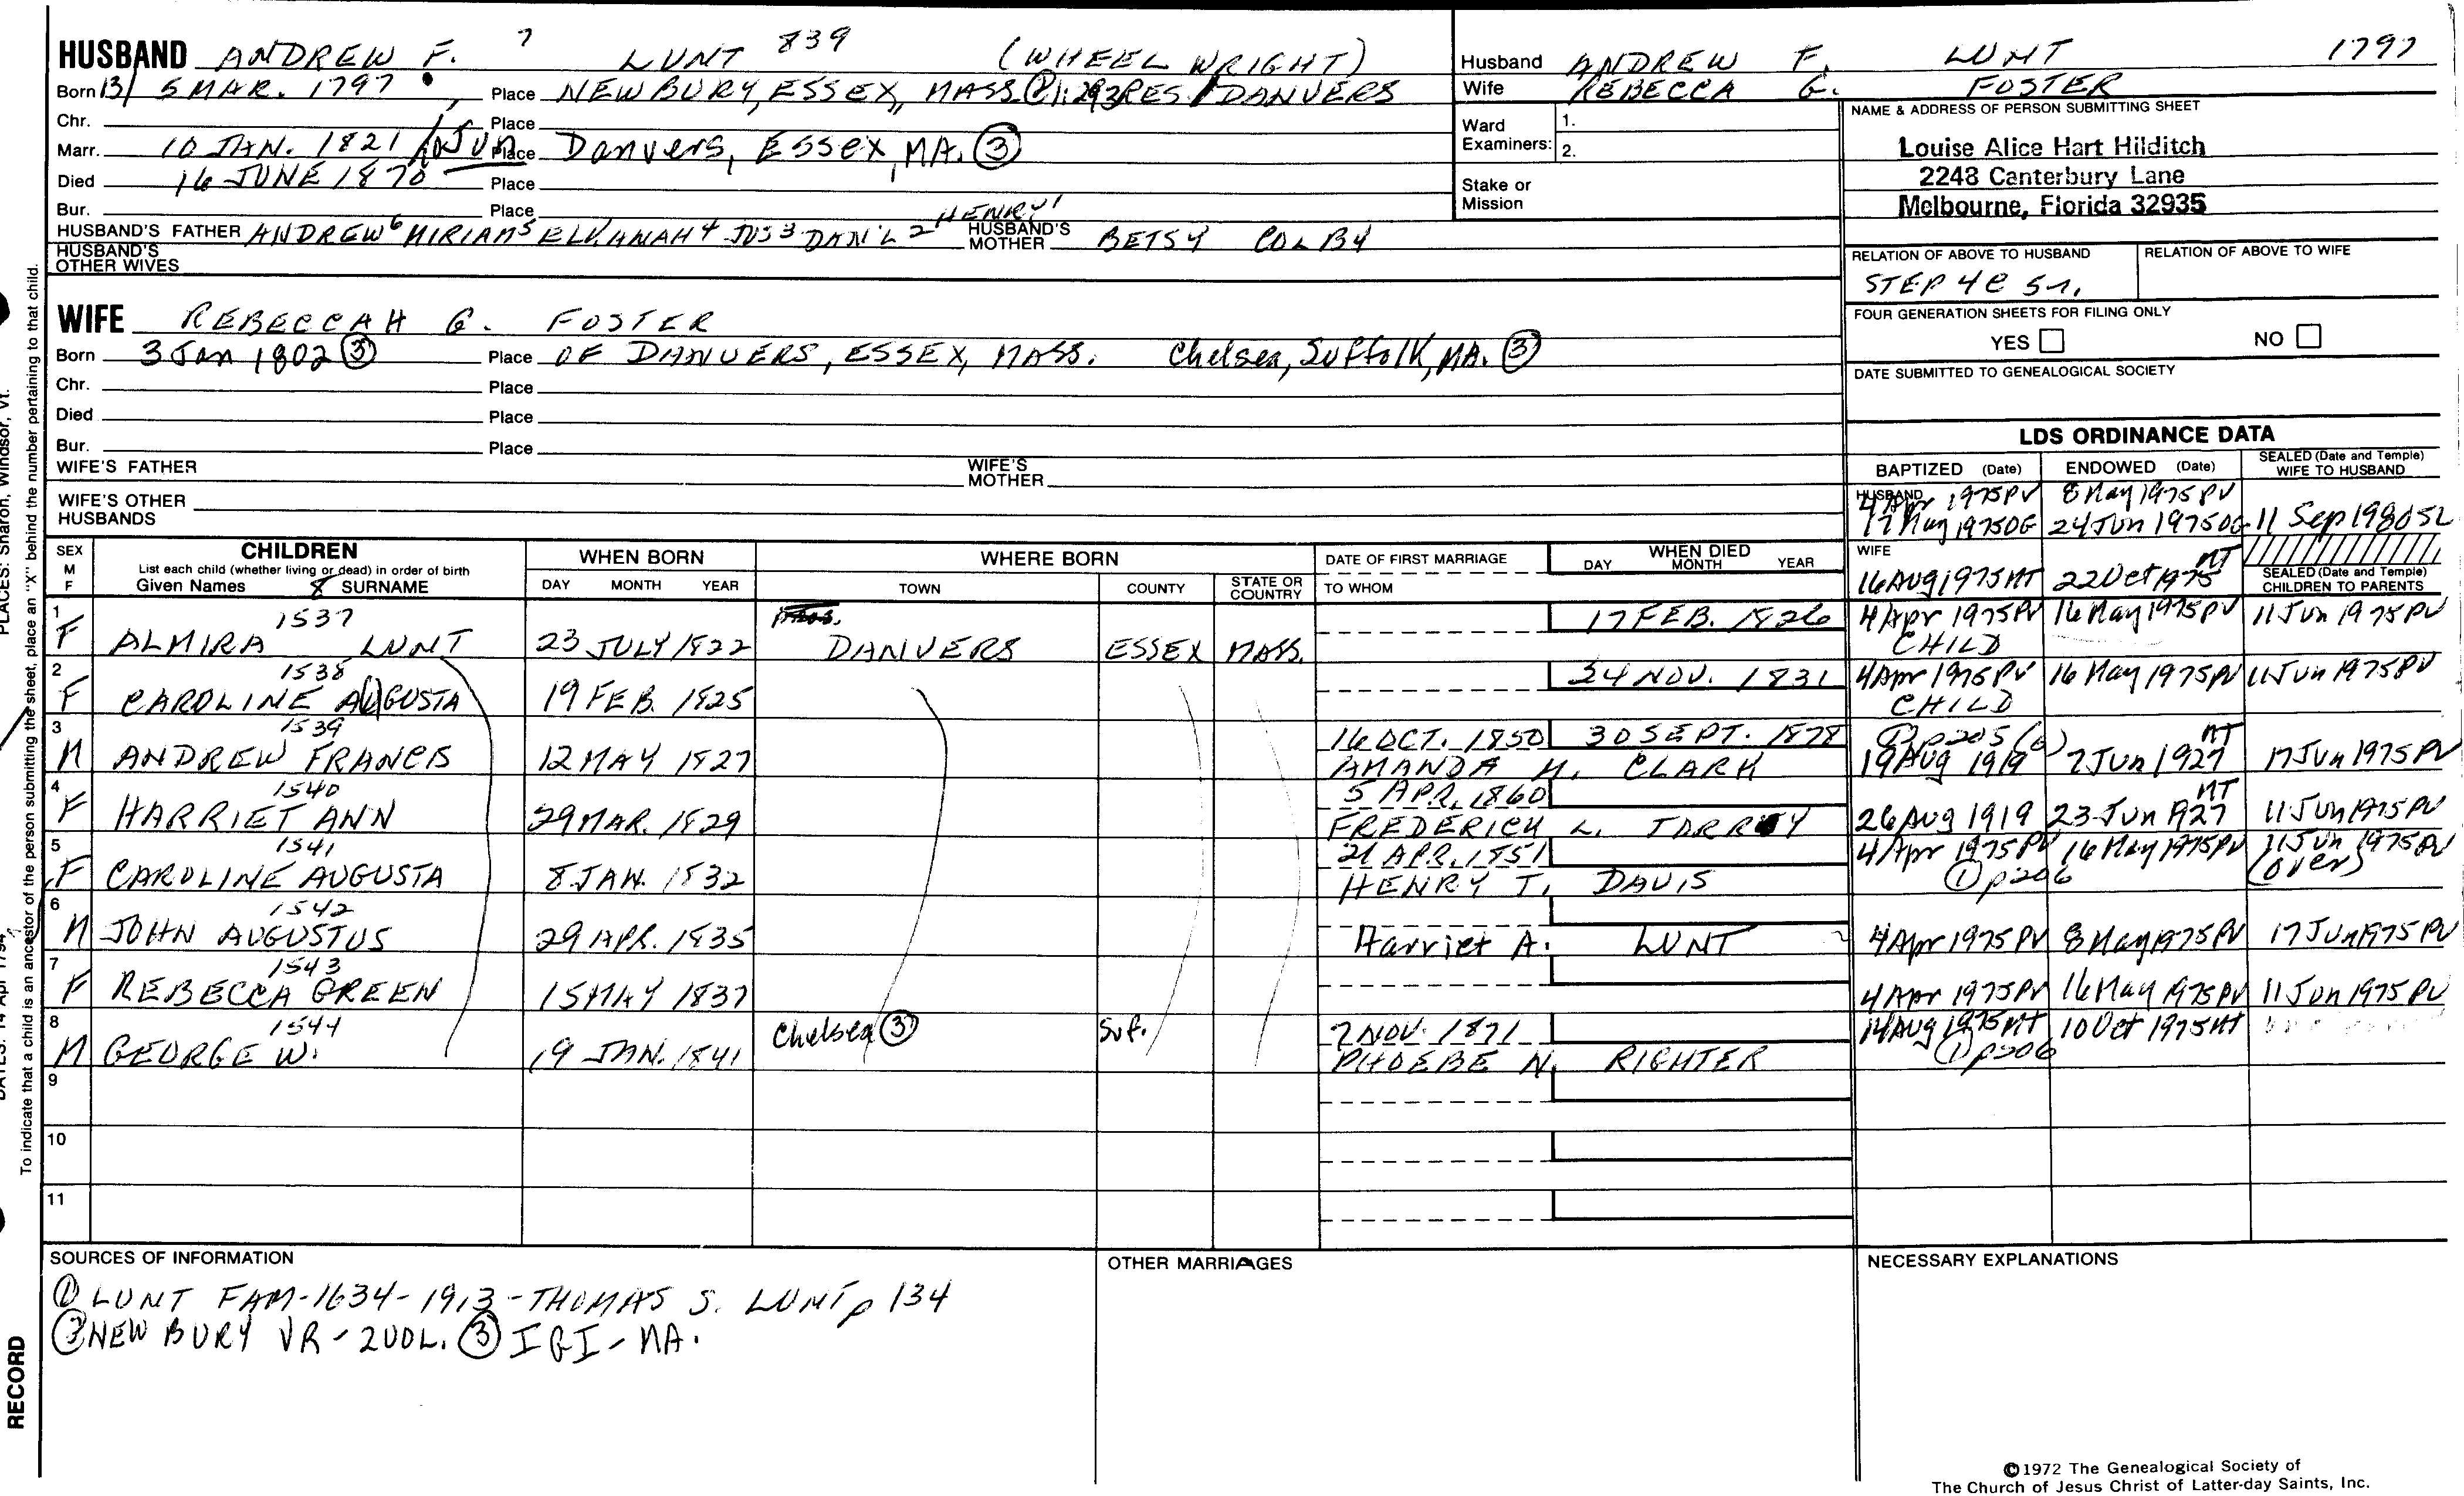 HUSBAND ANDREW F. 7 LUNT 839 (WHEEL WRIGHT)
Born 13/ 5 MAR. 1797 Place NEWBURY, ESSEX, MASS. RES. DANVERS
Chr. Place
Marr. 10 JAN. 1821 / Jun Place Danvers, Essex, MA. ③
Died 16 JUNE 1870 Place
Bur. Place
HUSBAND'S FATHER ANDREW 6 MIRIAM 5 ELKANAH 4 JOS 3 DAN'L 2 HENRY 1 HUSBAND'S MOTHER BETSY COLBY
HUSBAND'S OTHER WIVES
WIFE REBECCAH G. FOSTER
Born 3 Jan 1802 ③ Place OF DANVERS, ESSEX, MASS. Chelsea, Suffolk, MA. ③
Chr. Place
Died Place
Bur. Place
WIFE'S FATHER WIFE'S MOTHER
WIFE'S OTHER HUSBANDS
Husband ANDREW F. LUNT 1797
Wife REBECCA G. FOSTER
Ward Examiners: 1.
2.
Stake or Mission
NAME & ADDRESS OF PERSON SUBMITTING SHEET
Louise Alice Hart Hilditch
2248 Canterbury Lane
Melbourne, Florida 32935
RELATION OF ABOVE TO HUSBAND RELATION OF ABOVE TO WIFE
STEP 4C
FOUR GENERATION SHEETS FOR FILING ONLY
YES NO
DATE SUBMITTED TO GENEALOGICAL SOCIETY
LDS ORDINANCE DATA
BAPTIZED (Date) ENDOWED (Date) SEALED (Date and Temple) WIFE TO HUSBAND
HUSBAND 4 Apr 1975 PV 8 May 1975 PV
17 May 1975 OG 24 Jun 1975 OG 11 Sep 1980 SL
WIFE 16 AUG 1975 MT 22 Oct 1975 MT
SEALED (Date and Temple) CHILDREN TO PARENTS
SEX M F CHILDREN WHEN BORN WHERE BORN DATE OF FIRST MARRIAGE WHEN DIED
List each child (whether living or dead) in order of birth
Given Names 8 SURNAME DAY MONTH YEAR TOWN COUNTY STATE OR COUNTRY TO WHOM DAY MONTH YEAR
1 1537 17 FEB. 1826 4 Apr 1975 PV 16 May 1975 PV 11 Jun 1975 PV
F ALMIRA LUNT 23 JULY 1822 DANVERS ESSEX MASS. CHILD
2 1538 24 NOV. 1831 4 Apr 1975 PV 16 May 1975 PV 11 Jun 1975 PV
F CAROLINE AUGUSTA 19 FEB. 1825 CHILD
3 1539 16 OCT. 1850 30 SEPT. 1878 ① p205 MT
M ANDREW FRANCIS 12 MAY 1827 AMANDA M. CLARK 19 Aug 1919 7 Jun 1927 17 Jun 1975 PV
4 1540 5 APR. 1860 MT
F HARRIET ANN 29 MAR. 1829 FREDERICK L. TORREY 26 Aug 1919 23 Jun 1927 11 Jun 1975 PV
5 1541 21 APR. 1851 4 Apr 1975 PV 16 May 1975 PV 11 Jun 1975 PV
F CAROLINE AUGUSTA 8 JAN. 1832 HENRY T. DAVIS ① p206 (over)
6 1542
M JOHN AUGUSTUS 29 APR. 1835 Harriet A. LUNT 4 Apr 1975 PV 8 May 1975 PV 17 Jun 1975 PV
7 1543
F REBECCA GREEN 15 MAY 1837 4 Apr 1975 PV 16 May 1975 PV 11 Jun 1975 PV
8 1544 Chelsea ③ Suf. 7 NOV. 1871 14 Aug 1975 MT 10 Oct 1975 MT
M GEORGE W. 19 JAN. 1841 PHOEBE N. RIGHTER ① p206
9
10
11
SOURCES OF INFORMATION OTHER MARRIAGES NECESSARY EXPLANATIONS
① LUNT FAM - 1634 - 1913 - THOMAS S. LUNT p 134
NEWBURY VR - 2 VOL. ③ IGI - MA.
©1972 The Genealogical Society of
The Church of Jesus Christ of Latter-day Saints, Inc.
To indicate that a child is an ancestor of the person submitting the sheet, place an "X" behind the number pertaining to that child.
PLACES: Sharon, Windsor, Vt.
DATES: 14 Apr 1794
RECORD